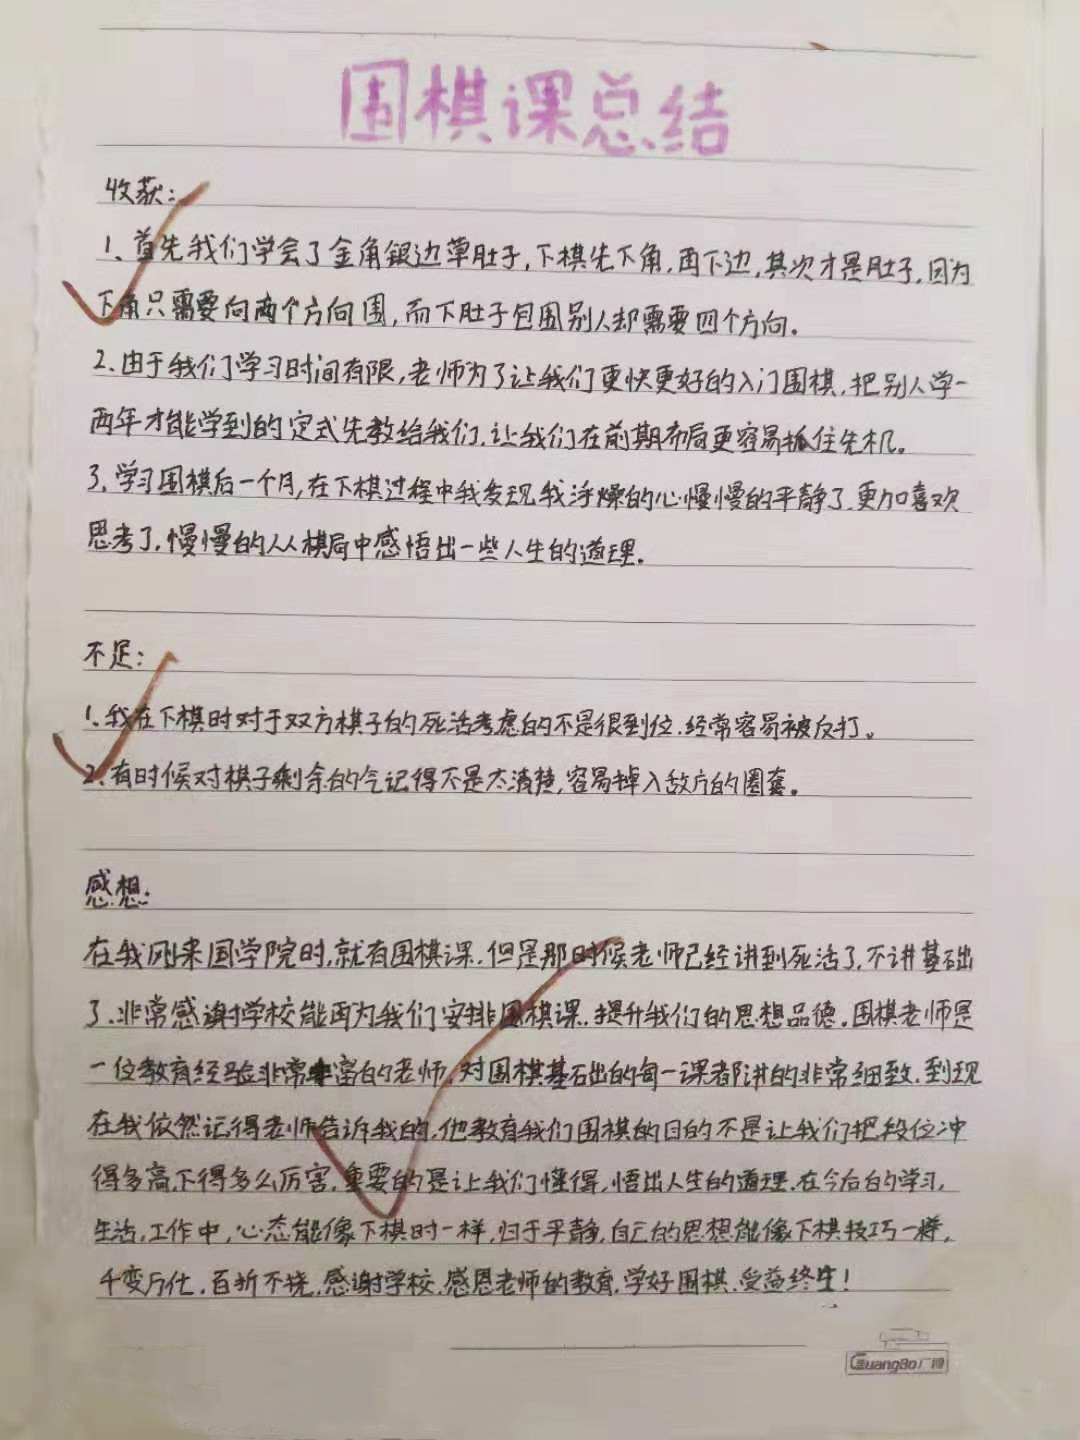 围棋课总结
收获:
1、首先我们学会了金角银边薄肚子,下棋先下角,再下边,其次才是肚子,因为
下角只需要向两个方向围,而下肚子包围别人却需要四个方向。
2、由于我们学习时间有限,老师为了让我们更快更好的入门围棋,把别人学一
两年才能学到的定式先教给我们,让我们在前期布局更容易抓住先机。
3、学习围棋后一个月,在下棋过程中我发现我浮燥的心慢慢的平静了,更加喜欢
思考了,慢慢的从棋局中感悟出一些人生的道理。
不足:
1、我在下棋时对于双方棋子的死活考虑的不是很到位,经常容易被反打。
2、有时候对棋子剩余的气记得不是太清楚,容易掉入敌方的圈套。
感想:
在我刚来国学院时,就有围棋课,但是那时候老师已经讲到死活了,不讲基础
了,非常感谢学校能再为我们安排围棋课,提升我们的思想品德。围棋老师是
一位教育经验非常丰富的老师,对围棋基础的每一课都讲的非常细致,到现
在我依然记得老师告诉我的,他教育我们围棋的目的不是让我们把段位冲
得多高,下得多么厉害,重要的是让我们懂得,悟出人生的道理,在今后的学习,
生活,工作中,心态能像下棋时一样,归于平静,自己的思想能像下棋技巧一样,
千变万化,百折不挠,感谢学校,感恩老师的教育,学好围棋,受益终生!
GuangBo广博